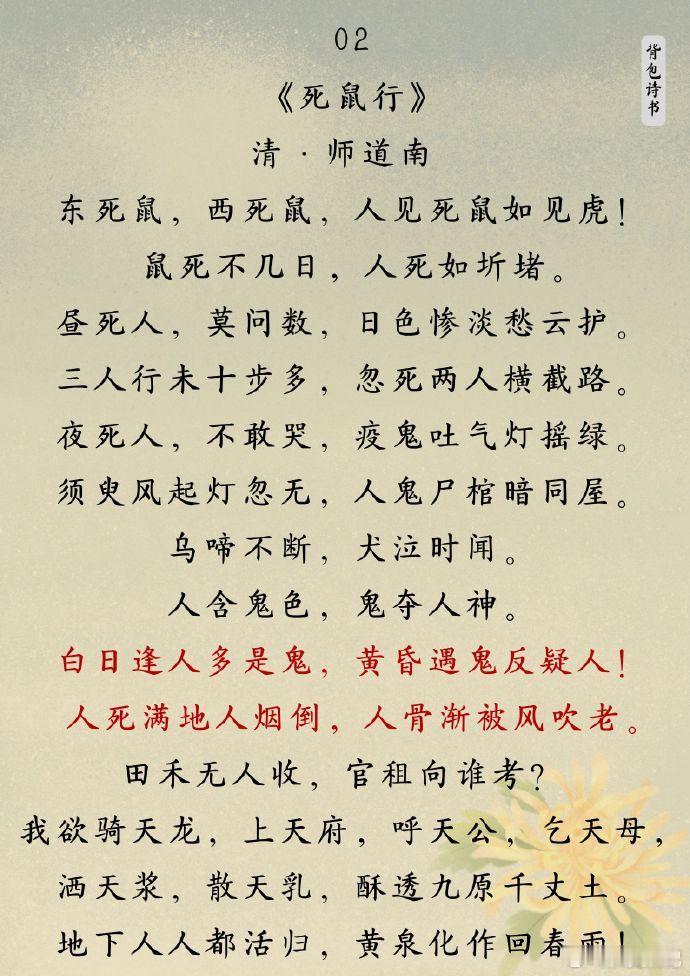 02
背包诗书
《死鼠行》
清·师道南
东死鼠，西死鼠，人见死鼠如见虎！
鼠死不几日，人死如圻堵。
昼死人，莫问数，日色惨淡愁云护。
三人行未十步多，忽死两人横截路。
夜死人，不敢哭，疫鬼吐气灯摇绿。
须臾风起灯忽无，人鬼尸棺暗同屋。
乌啼不断，犬泣时闻。
人含鬼色，鬼夺人神。
白日逢人多是鬼，黄昏遇鬼反疑人！
人死满地人烟倒，人骨渐被风吹老。
田禾无人收，官租向谁考？
我欲骑天龙，上天府，呼天公，乞天母，
洒天浆，散天乳，酥透九原千丈土。
地下人人都活归，黄泉化作回春雨！